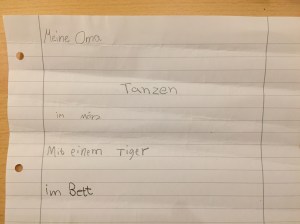 Meine Oma
Tanzen
in März
Mit einem Tiger
im Bett